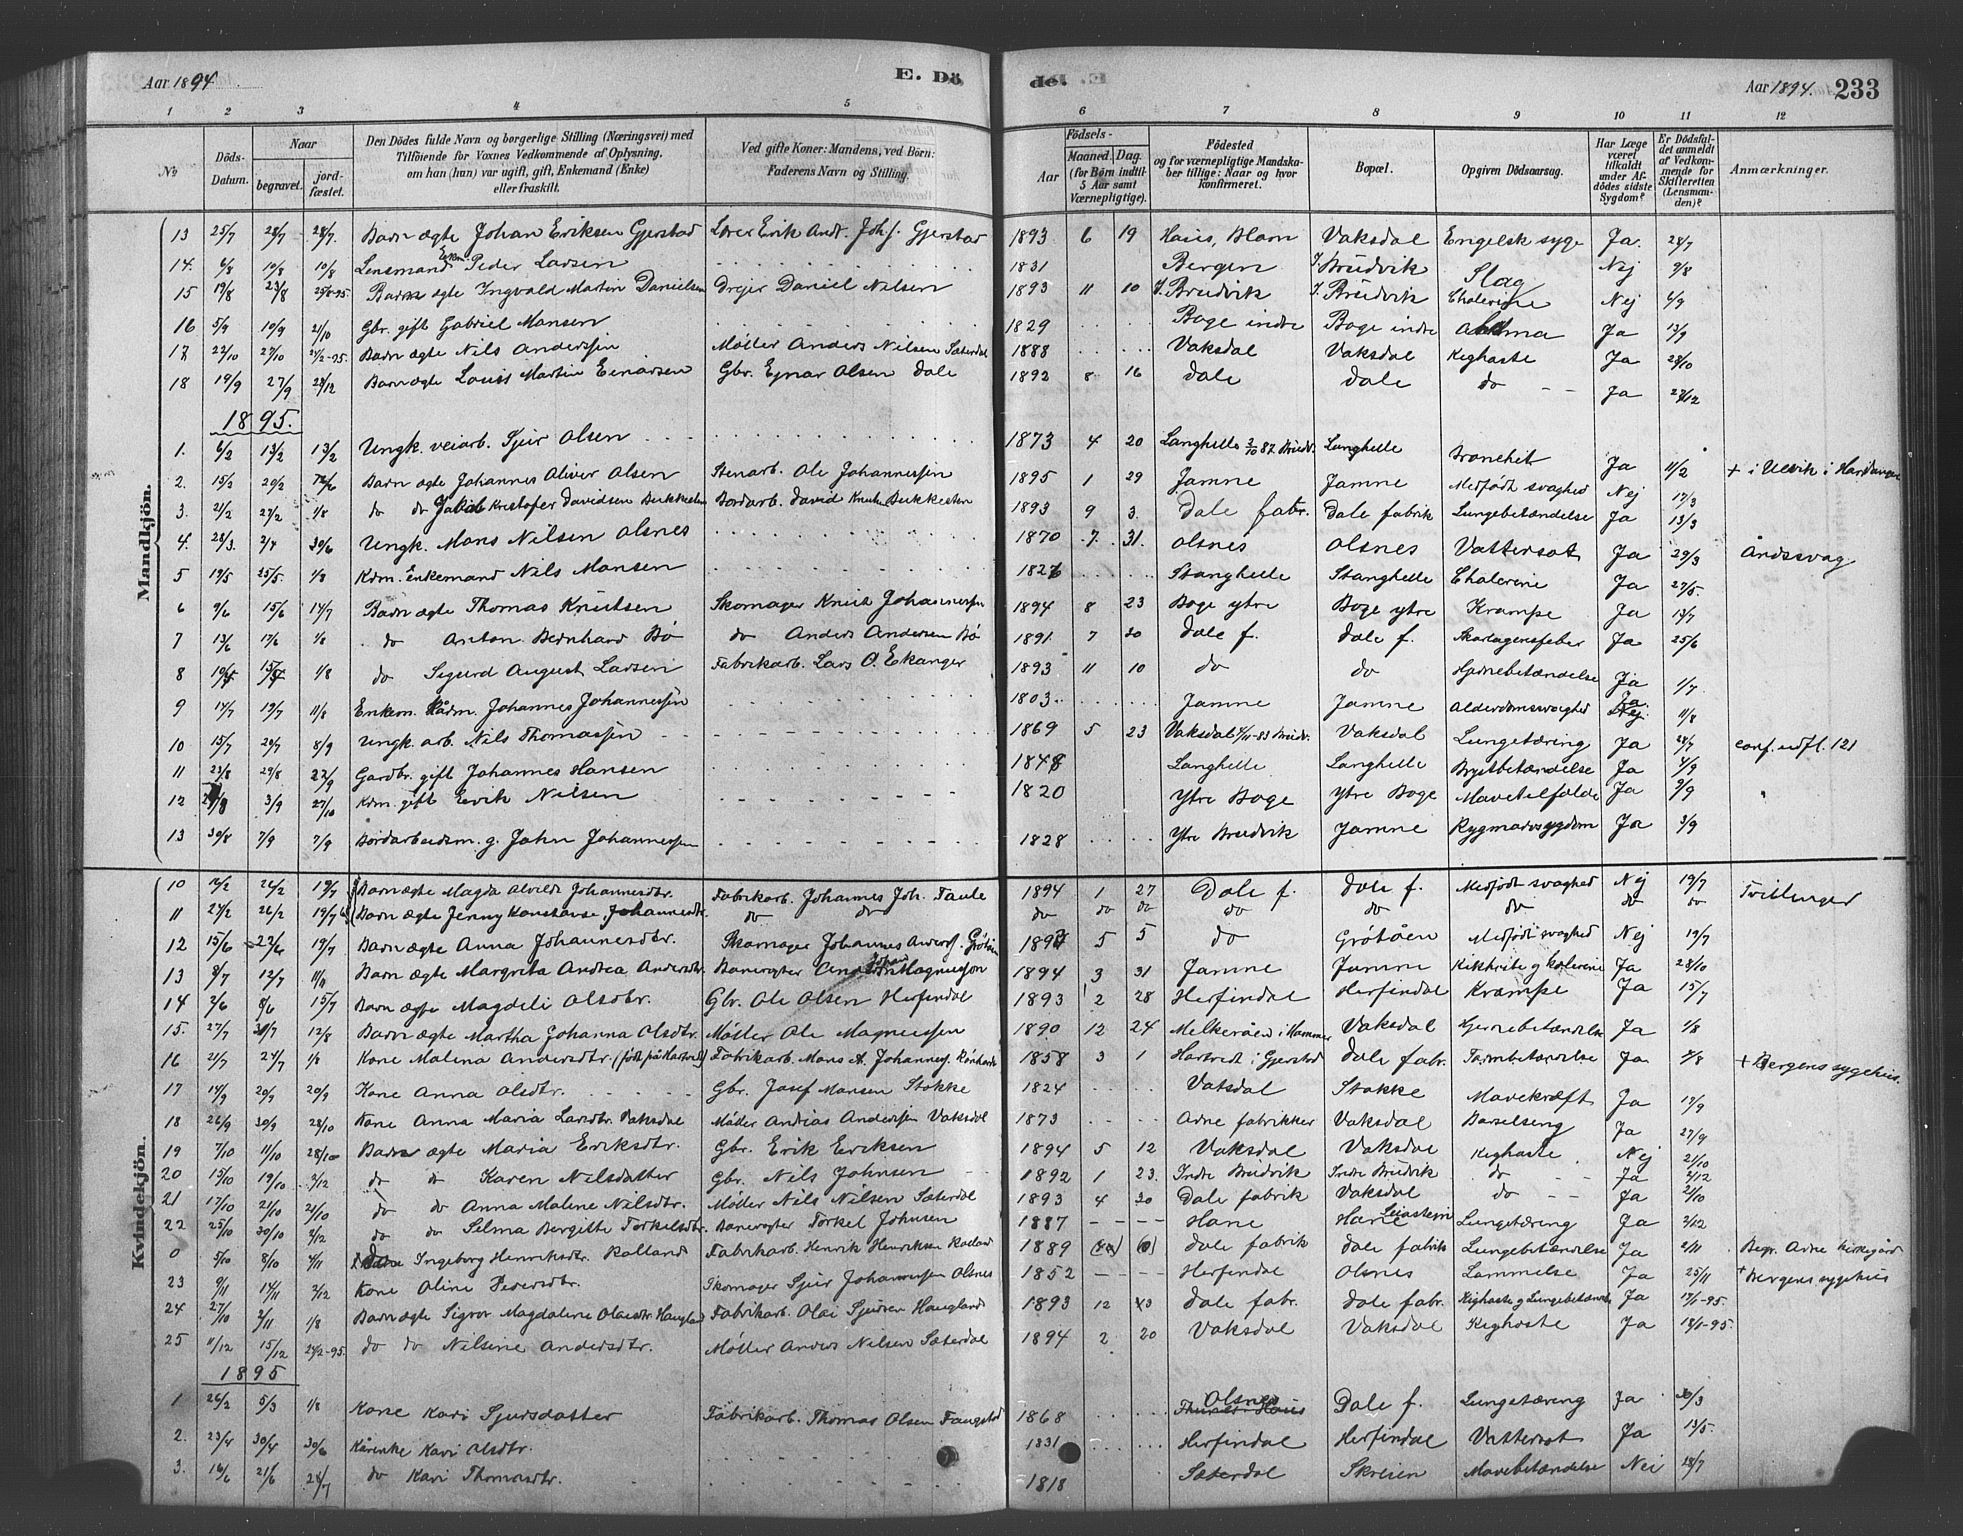 Aar 1894. E. Dö
de. Aar 1894. 233
1 2 3 4 5 6 7 8 9 10 11 12
No Döds-Datum. Naar begravet. jord-fæstet. Den Dödes fulde Navn og borgerlige Stilling (Næringsvei) med Tilföiende for Voxnes Vedkommende af Oplysning, om han (hun) var ugift, gift, Enkemand (Enke) eller fraskilt. Ved gifte Koner: Mandens, ved Börn: Faderens Navn og Stilling. Födsels- Aar Maaned. Dag. (for Börn indtil 5 Aar samt Værnepligtige). Födested og for værnepligtige Mandska-ber tillige: Naar og hvor konfirmeret. Bopæl. Opgiven Dödsaarsag. Har Læge været tilkaldt under Af-dödes sidste Sygdom? Er Dödsfal-det anmeldt af Vedkom-mende for Skifteretten (Lensman-den)? Anmærkninger.
Mandkjön.
13 25/7 28/7 28/7. Barn ægte Johan Eriksen Gjerstad Lærer Erik Andr. Joh.s. Gjerstad 1893 6 19 Haus, Blom Vaksdal Engelsk syge Ja. 28/7
14. 6/8 10/8 10/8 Lensmand Enkm. Peder Larsen 1831 Bergen I. Bruvik Slag Nej 9/8
15 19/8 23/8 25/8-95. Barn ægte Ingvald Martin Danielsen Drejer Daniel Nilsen 1893 11 10 I. Bruvik I. Bruvik Cholerine Nej 6/9
16 5/9 10/9 21/10 Gbr. gift Gabriel Monsen 1829 Boge indre Boge indre Astma Ja 13/9
17 22/10 27/10 21/2-95. Barn ægte Nils Anderssen Møller Anders Nilsen Sæterdal 1888 Vaksdal Vaksdal Kighoste Ja 28/10
18 19/9 27/9 27/12 Barn ægte Louis Martin Einarsen Gbr. Ejnar Olsen Dale 1892 8 16 Dale Dale do Ja 27/12
1895.
1. 6/2 13/2 13/2 Ungk. veiarb. Sjur Olsen 1873 4 20 Langhelle 2/10 87. Bruv. Langhelle Bronchit Ja 11/2 + i Ulvik i Hardanger
2. 15/2 20/2 Barn ægte Johannes Oliver Olsen Stenarb. Ole Johannessen 1895 1 29 Jamne Jamne Medfødt svaghed Nej 17/3
3. 21/2 27/2 1/8 do do Jakob Kristofer Davidsen Birkkesten Bordarb. David Knuts. Birkkesten 1893 9 3. Dale fabr. Dale fabrik Lungebetændelse Ja 13/3
4. 28/3. 2/4 30/6 Ungk. Mons Nilsen Olsnes 1870 7. 31. Olsnes Olsnes Vattersot Ja 29/3 Åndssvag
5 19/5 25/5. 1/8 Kdm. Enkemand Nils Monsen 1826 Stanghelle Stanghelle Cholerine Ja 27/5.
6 9/6 15/6 14/7 Barn ægte Thomas Knutsen Skomager Knut Johannessen 1894 8 23 Boge ytre Boge ytre Krampe Ja 13/7
7 13/6 17/6 1/8 do Anton Bernhard Bö do Anders Andersen Bö 1891. 7 30 Dale f. Dale f. Skarlagensfeber Ja 25/6
8 1/8 do Sigurd August Larsen Fabrikarb. Lars O. Eikanger 1893 11 10 do do Hjernebetændelse Ja 1/7
9 14/7 19/7 11/8 Enkem. Kårm. Johannes Johannessen 1803. Jamne Jamne Alderdomssvaghed Ja. 11/8
10 15/7 20/7 8/9 Ungk. arb. Nils Thomassen 1869 5 23 Vaksdal 4/11-83 Bruv. Vaksdal Lungetæring Ja 28/7 conf. udfl. 121
11 23/8 29/8 22/9 Gardbr. gift Johannes Hansen 1848 Langhelle Langhelle Brystbetændelse Ja 4/9
12 3/9 27/10 Kdm. gift Erik Nilsen 1820 Ytre Boge Ytre Boge Mavetilfælde Ja 9/9
13 30/8 7/9 7/9 Bordarbeidsm. g. John Johannessen 1828 Ytre Bruvik Jamne Rygmarvssygdom Ja 3/9
Kvindekjön.
10 12/2 26/2 19/7 Barn ægte Magda Alvilde Johannesdtr. Fabrikarb. Johannes Joh. Faule 1894 1 27 Dale f. Dale f. Medfødt svaghed Nej 19/7 Tvillinger
11 21/2 26/2 19/7 Barn ægte Jenny Konstanse Johannesdtr. do do do do do do do do do do
12 15/6 23/6 19/7 Barn ægte Anna Johannesdtr. Skomager Johannes Anders. Grötöen 1894 5 5 do Grötöen Medfødt svaghed Nej 19/7
13 8/7 12/7 11/11 Barn ægte Margrita Andrea Andersdtr. Banevogter Anders Johan Magnusson 1894 3 31 Jamne Jamne Kikhoste og kolerine Ja 28/10
14 2/6 8/6 15/7 Barn ægte Magdeli Olsdtr. Gbr. Ole Olsen Herfindal 1893 2 28 Herfindal Herfindal Krampe Ja 15/7
15. 27/7 31/7 12/8 Barn ægte Martha Johanna Olsdtr. Møller Ole Magnussen 1890 12 24 Melkeråen i Hammer Vaksdal Hjernebetændelse Ja 1/8
16 21/7 24/7 1/8 Kone Malena Andersdtr. (født på Hartvedt) Fabrikarb. Mons A. Johannes. Rönhovde 1858 3 1 Hartvedt i Gjerstad Dale fabr. Tarmbetændelse Ja 8/8 + Bergens sygehus.
17 14/9 20/9 20/9 Kone Anna Olsdtr. Gbr. Josef Monsen Stokke 1824 Vaksdal Stokke Mavekræft Ja 17/9
18 26/9 30/9 28/10 Kone Anna Maria Larsdtr. Vaksdal Møller Andreas Anderssen Vaksdal 1873 Arne fabrikker Vaksdal Barselseng Ja 27/9
19 7/10 11/10 28/10 Barn ægte Maria Eriksdtr. Gbr. Erik Eriksen 1894 5 12 Vaksdal Vaksdal Kighoste Nej 21/10
20 15/10 19/10 3/12 do do Karen Nilsdatter Gbr. Nils Johnsen 1892 1 23. Indre Bruvik Indre Bruvik do Ja 2/12
21 17/10 21/10 21/10 do do Anna Malene Nilsdtr. Møller Nils Nilsen Sæterdal 1893 4 30 Dale fabrik Vaksdal do Ja 2/10
22 25/10 30/10 2/12 do do Selma Bergitte Torkelsdtr. Banevogter Torkel Johnsen 1887 Hane Hane Seiastein Lungetæring Ja 2/12
0 5/10 8/10 4/11 Ingeborg Henriksdtr. Rolland Fabrikarb. Henrik Henriksen Rolland 1889 Dale fabrik Dale fabrik Lungebetændelse Ja 2/11 Begr. Arne kirkegård
23 9/11 14/11 2/12 Kone Oline Pedersdtr. Skomager Sjur Johannessen Olsnes 1852 Herfindal Olsnes Lammelse Ja 25/11 + Bergens sygehus
24 27/10 2/11 1/8 Barn ægte Sigvor Magdalene Olaisdtr. Haugland Fabrikarb. Olai Sjursen Haugland 1893 12 Dale fabr. Dale fabr. Kighoste og Lungebetændelse Ja 17/1-95.
25 11/12 15/12 21/2-95. do do Nilsine Andersdtr. Møller Anders Nilsen Sæterdal 1894 2 20 Vaksdal Vaksdal Kighoste Ja 18/1-95.
1895
1 26/2 5/3 1/8 Kone Kari Sjursdatter Fabrikarb. Thomas Olsen Faugstad 1868 Olsnes Dale f. Lungetæring Ja 30/3
2. 23/4 30/4 30/6 Kårenke Kari Olsdtr. 1831 Herfindal Herfindal Vattersot Ja 13/5.
3. 16/6 21/6 28/7 do Kari Thomasdtr. 1818 Sæterdal Skreien Mavebetændelse Nei 18/7